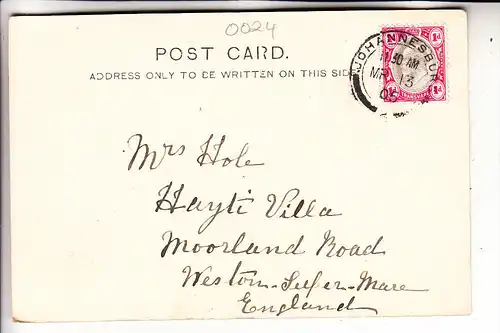 0024
POST CARD.
ADDRESS ONLY TO BE WRITTEN ON THIS SIDE
JOHANNESBUR
11 30 AM
MR 13
05
4
1d 1d
1d
Mrs Hole
Hayti Villa
Moorland Road
Weston-Super-Mare
England